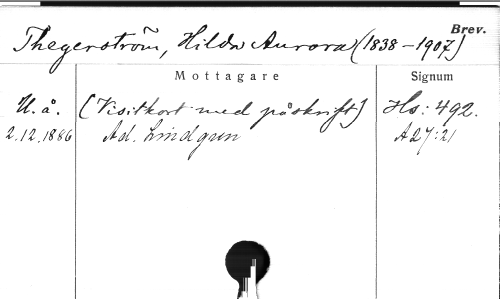 Brev.
Thegerström, Hilda Aurora (1838-1907)
Mottagare Signum
U.å. (Visitkort med påskrift) Hs: 492.
2.12.1886 Ad. Lindgren A27:21